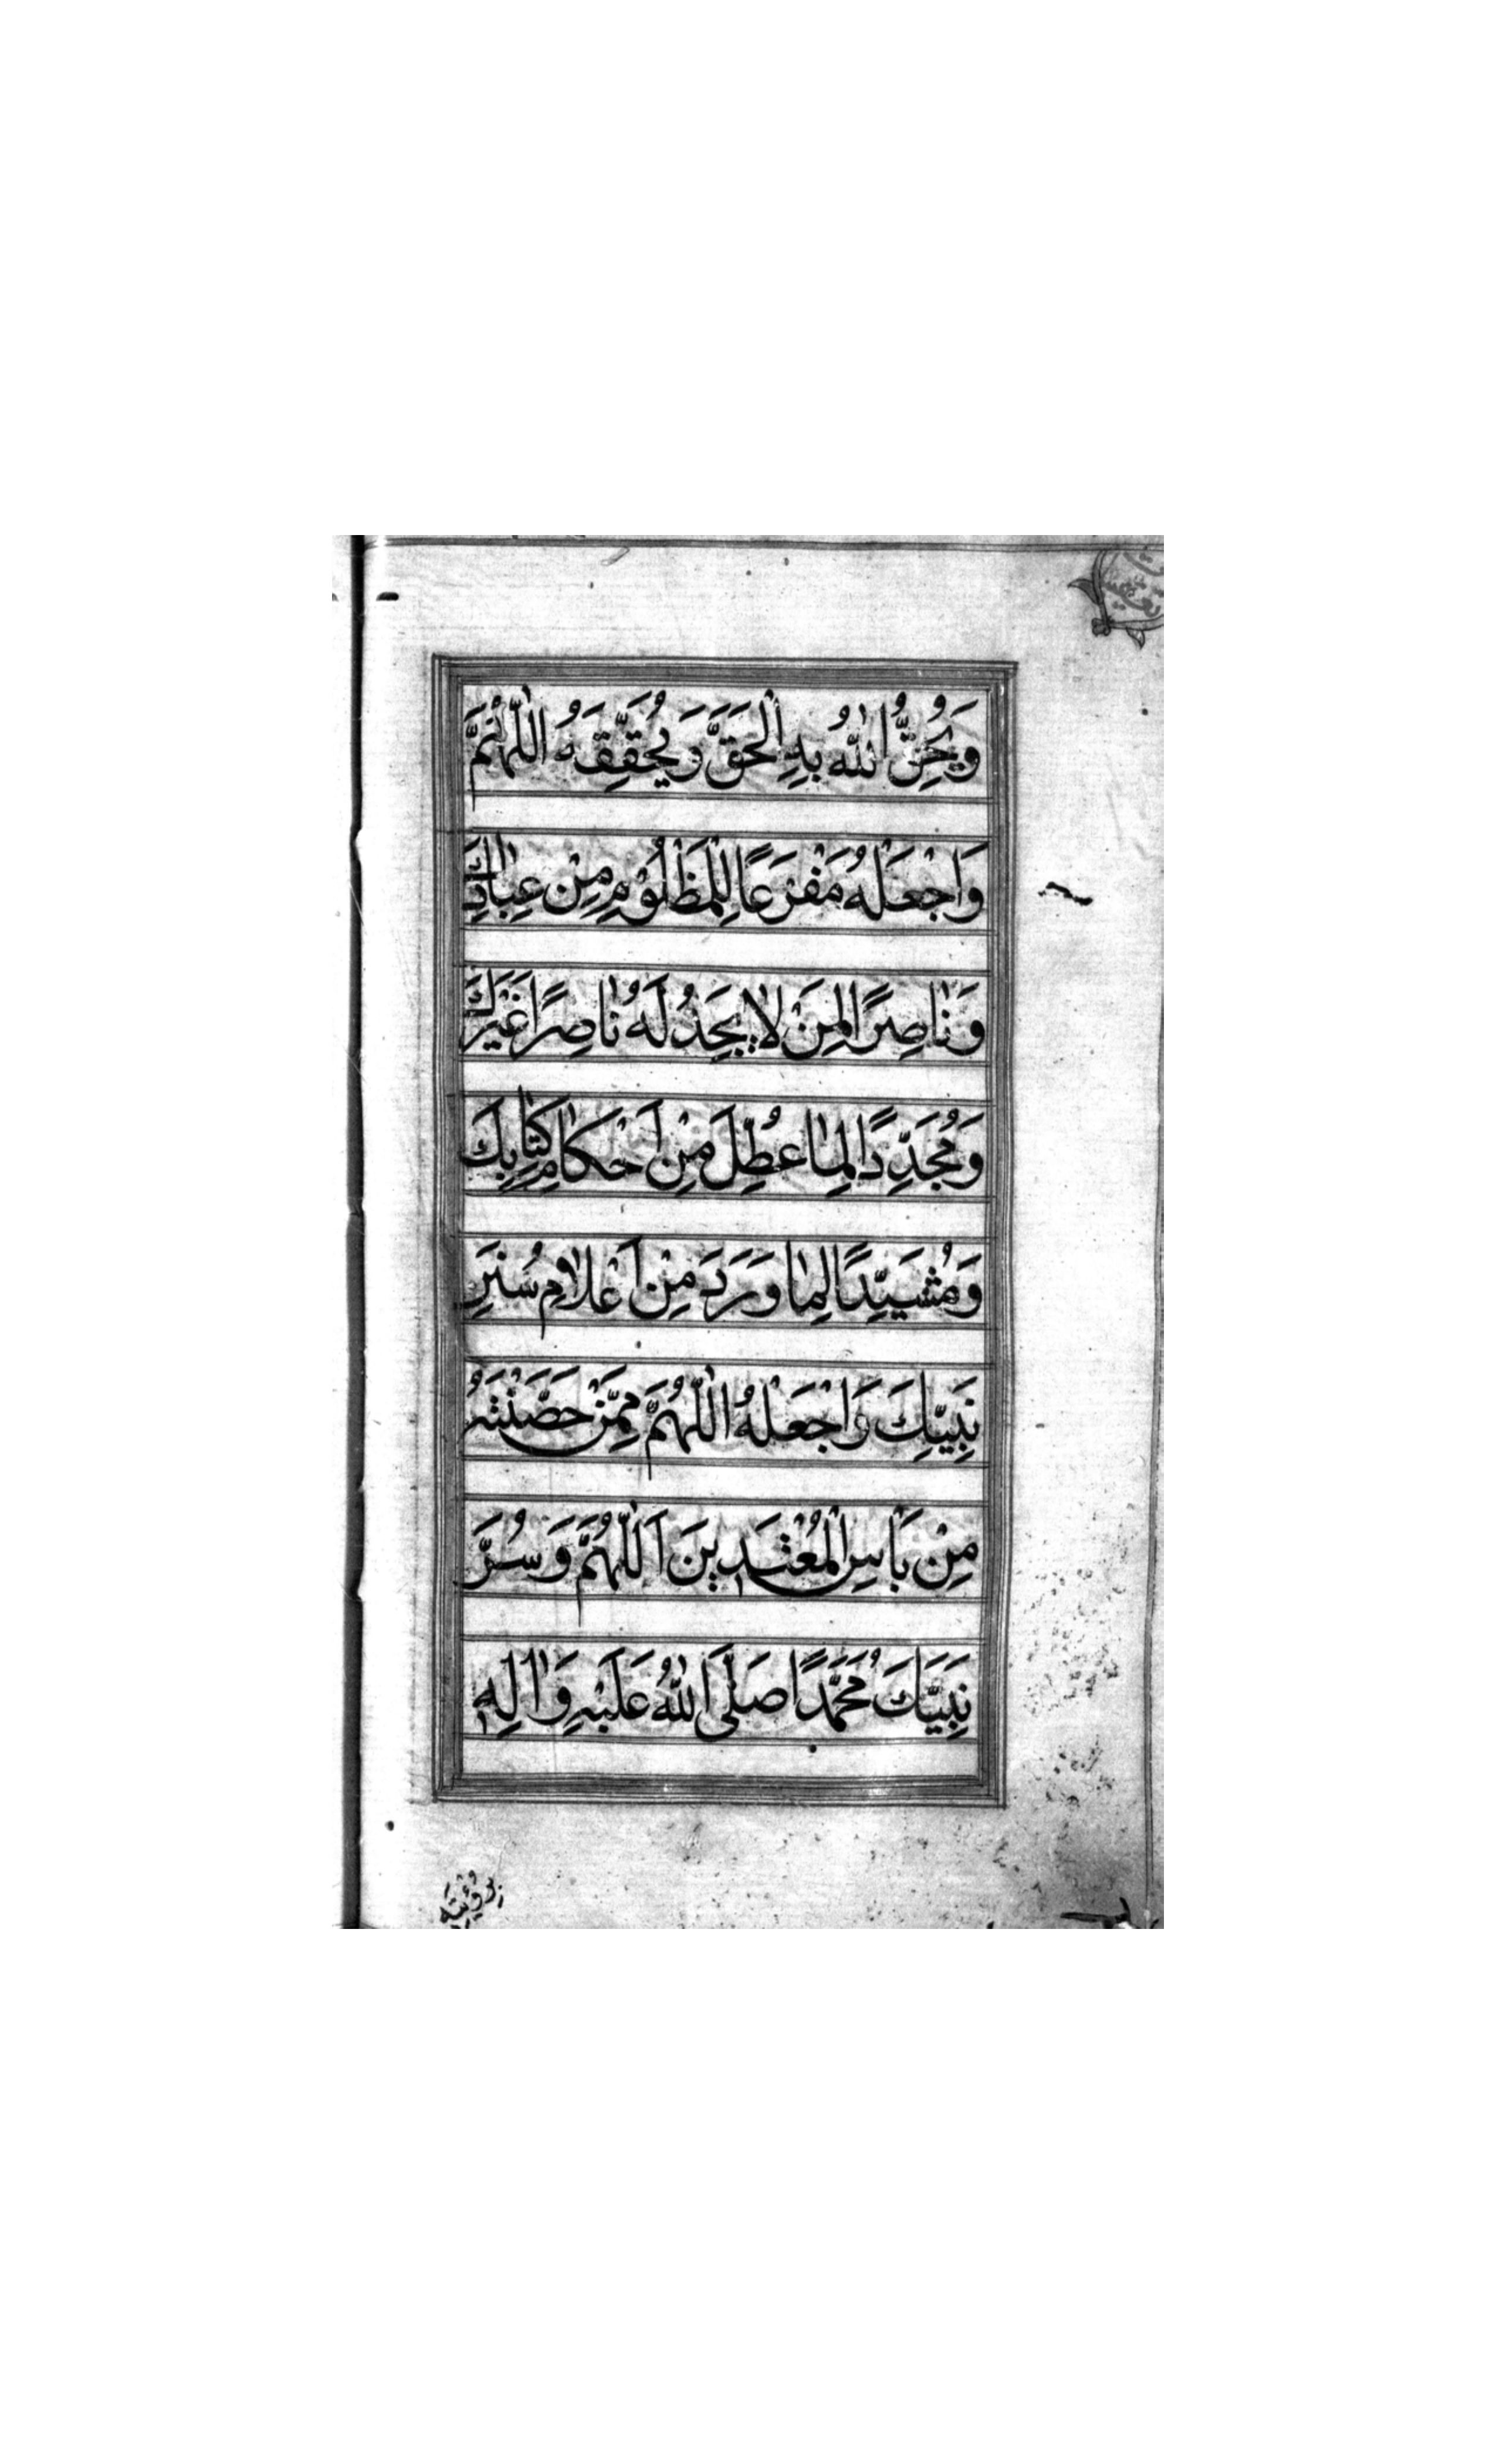 وَيُحِقُّ اللهُ بِهِ الْحَقَّ وَيُحَقِّقَهُ اَللّٰهُمَّ
وَاجْعَلْهُ مَفْزَعًا لِلْمَظْلُوْمِ مِنْ عِبَادِكَ
وَنَاصِرًا لِمَنْ لَا يَجِدُ لَهُ نَاصِرًا غَيْرَكَ
وَمُجَدِّدًا لِمَا عُطِّلَ مِنْ اَحْكَامِ كِتَابِكَ
وَمُشَيِّدًا لِمَا وَرَدَ مِنْ اَعْلَامِ سُنَنِ
نَبِيِّكَ وَاجْعَلْهُ اَللّٰهُمَّ مِمَّنْ حَصَّنْتَهُ
مِنْ بَاْسِ الْمُعْتَدِينَ اَللّٰهُمَّ وَسُرَّ
نَبِيَّكَ مُحَمَّدًا صَلَّى اللهُ عَلَيْهِ وَاٰلِهِ
بِرُؤْيَتِهِ